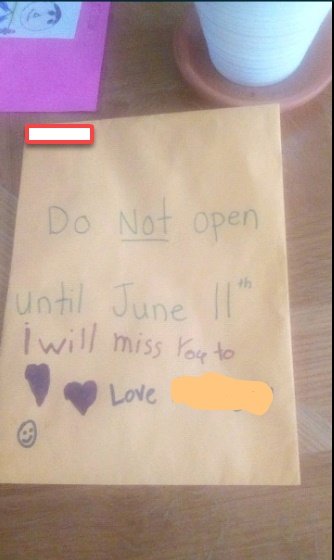 Do Not open
until June 11th
i will miss you to
Love